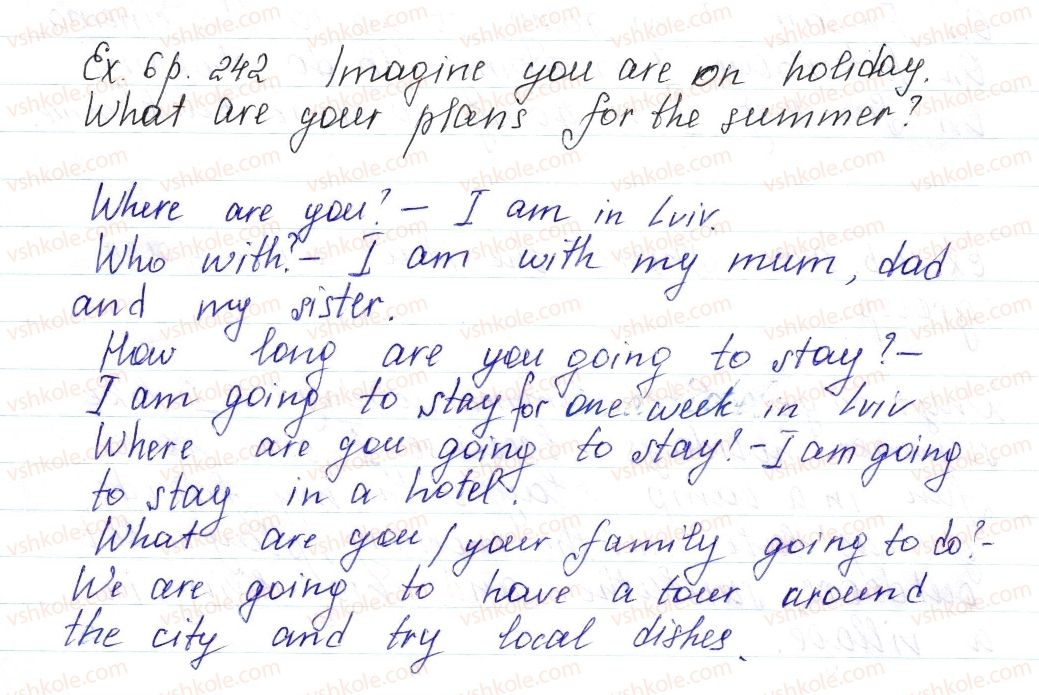 Ex. 6 p. 242 Imagine you are on holiday.
What are your plans for the summer?
Where are you? – I am in Lviv.
Who with? – I am with my mum, dad
and my sister.
How long are you going to stay? –
I am going to stay for one week in Lviv
Where are you going to stay? – I am going
to stay in a hotel.
What are you / your family going to do? –
We are going to have a tour around
the city and try local dishes.